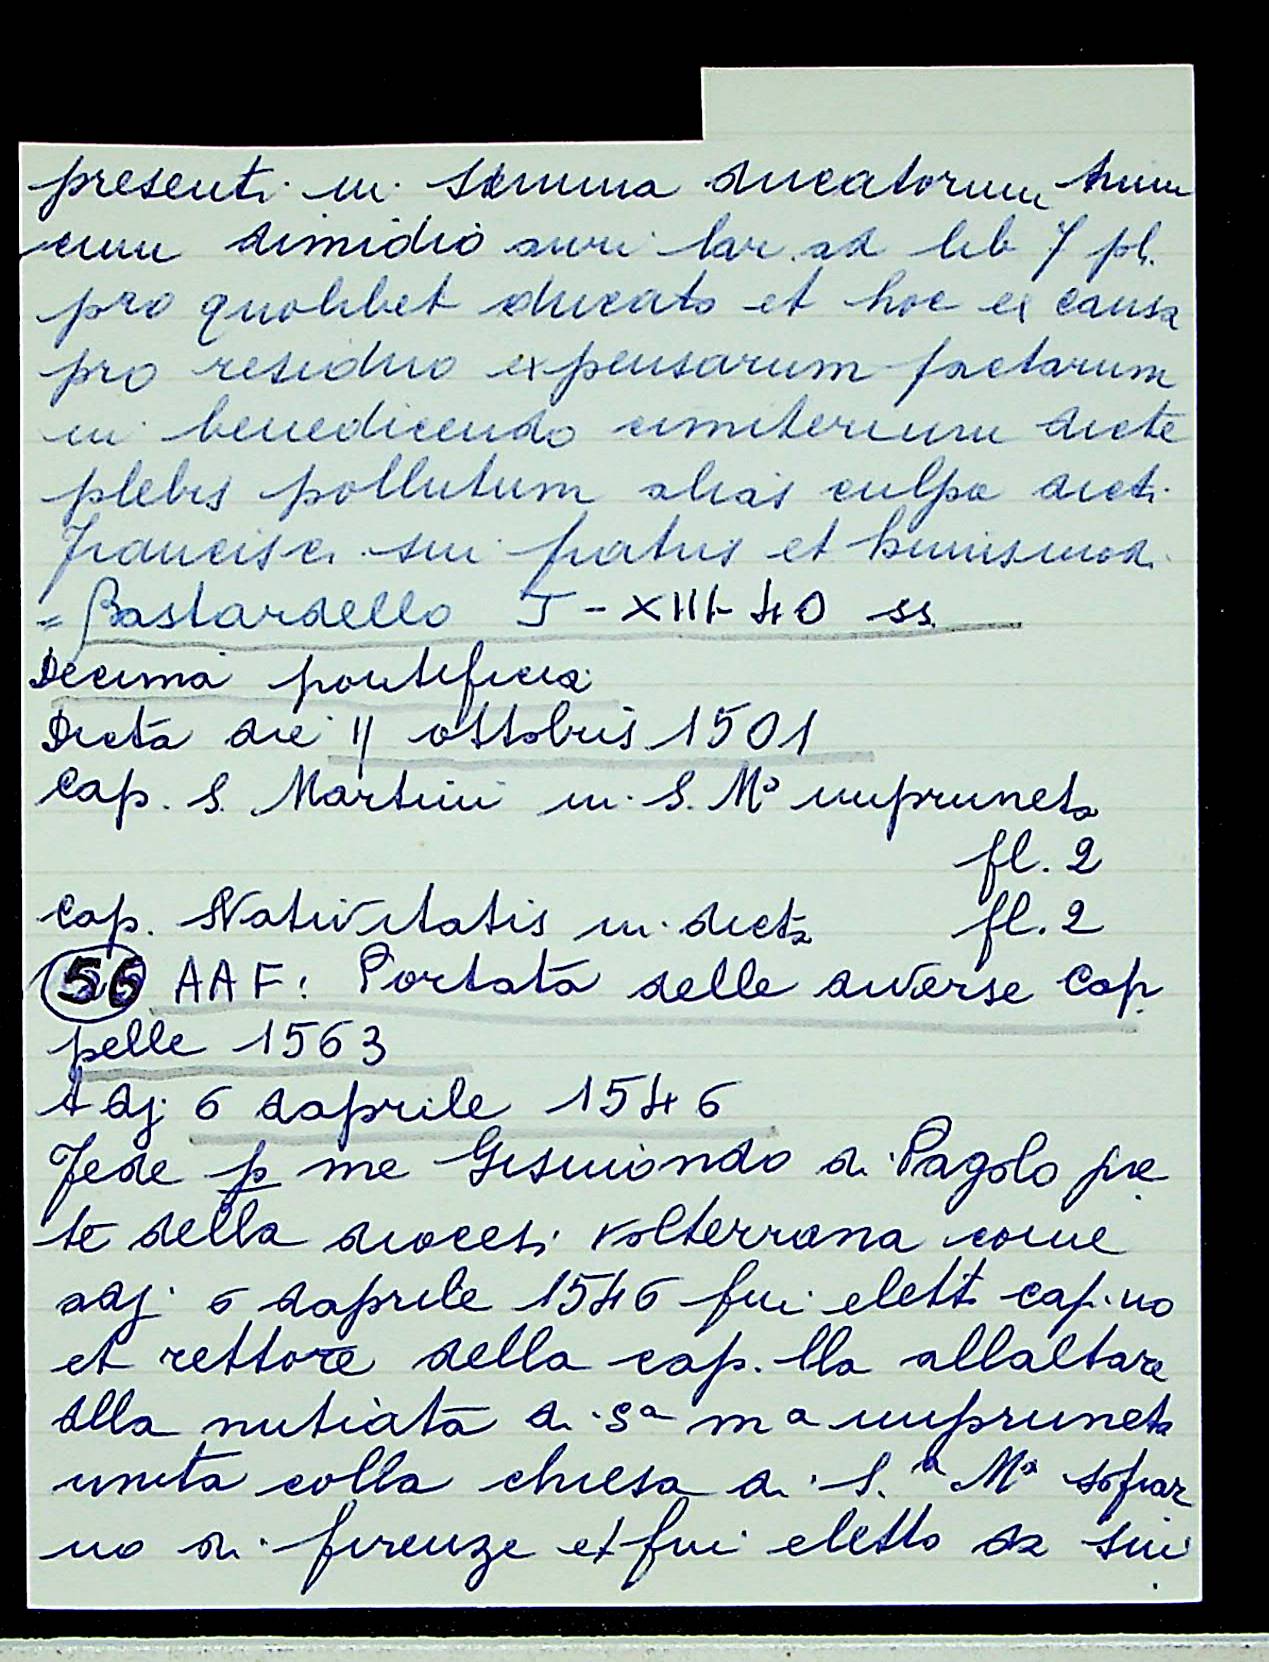 presenti in summa ducatorum trium
cum dimidio auri lar. ad lib 7 pl.
pro quolibet ducato et hoc ex causa
pro residuo expensarum factarum
in benedicendo cimiterium dicte
plebis pollutum alias culpa dicti
Francisci sui fratris et huiusmodi
= Bastardello J-XIII-40 ss.
Decima pontificia
Dicta die 11 ottobris 1501
Cap. S. Martini in S. Mª impruneta
fl. 2
Cap. Nativitatis in dicta fl. 2
56 AAF: Portata delle diverse Cap
pelle 1563
Adj 6 daprile 1546
Fede p me Gismondo di Pagolo pre
te della diocesi volterrana come
adj 6 daprile 1546 fui eletto cap.no
et rettore della cap.lla allaltare
della nutiata di sª mª impruneta
unita colla chiesa di S.ª Mª sopar
no di firenze et fui eletto da sui